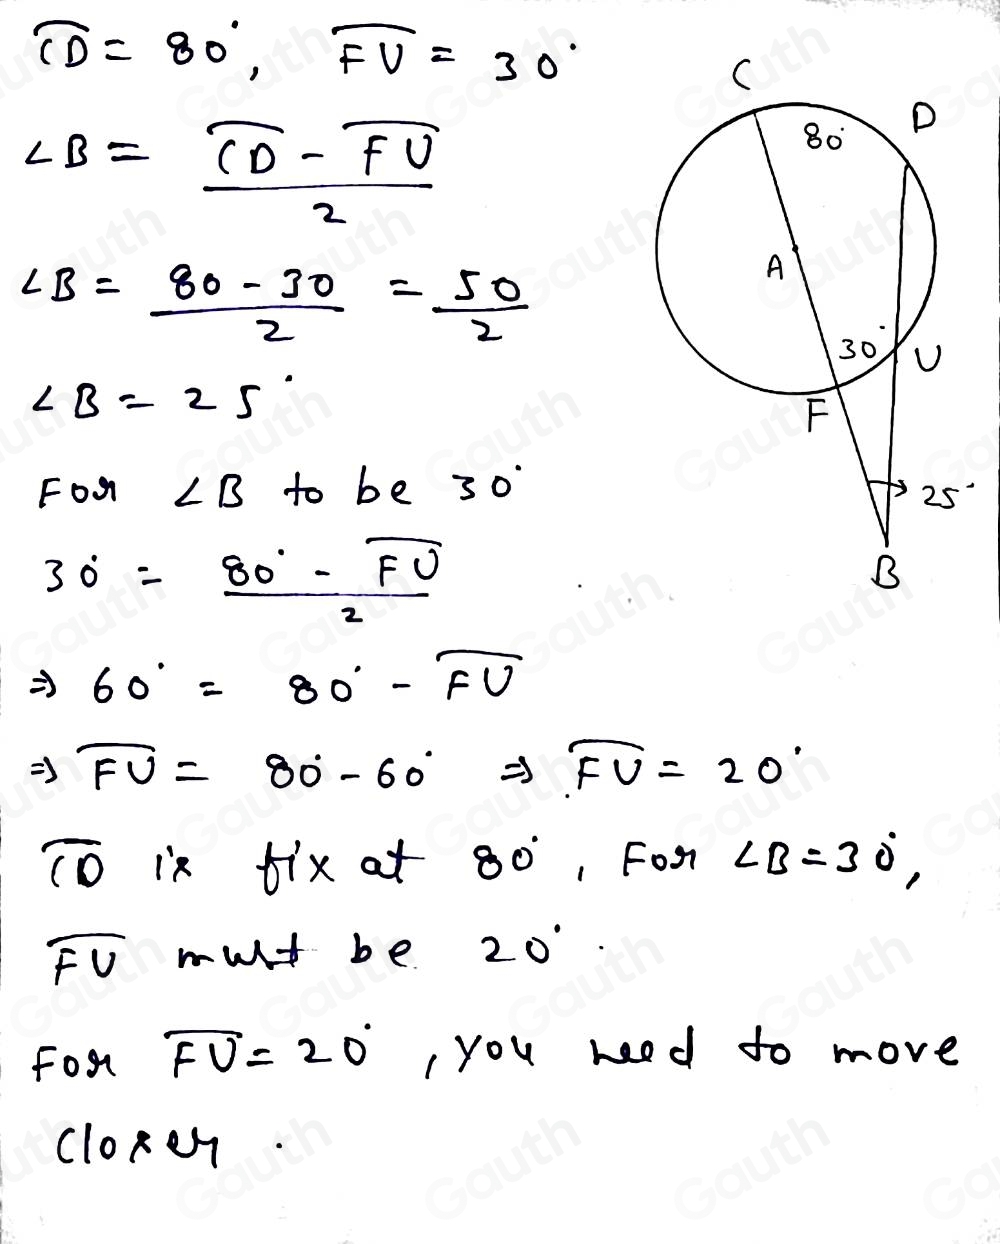 CD = 80°, FU = 30°
∠B = (CD - FU)/2
∠B = (80 - 30)/2 = 50/2
∠B = 25°
For ∠B to be 30°
30° = (80° - FU)/2
⇒ 60° = 80° - FU
⇒ FU = 80° - 60° ⇒ FU = 20°
CD is fix at 80°, For ∠B = 30°,
FU must be 20°.
For FU = 20°, you need to move
closer.
C
D
80°
A
30°
U
F
25°
B
Gauth